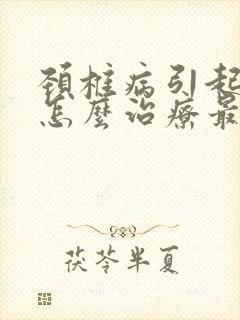 頚椎病引起
怎麼治療最
茯苓半夏